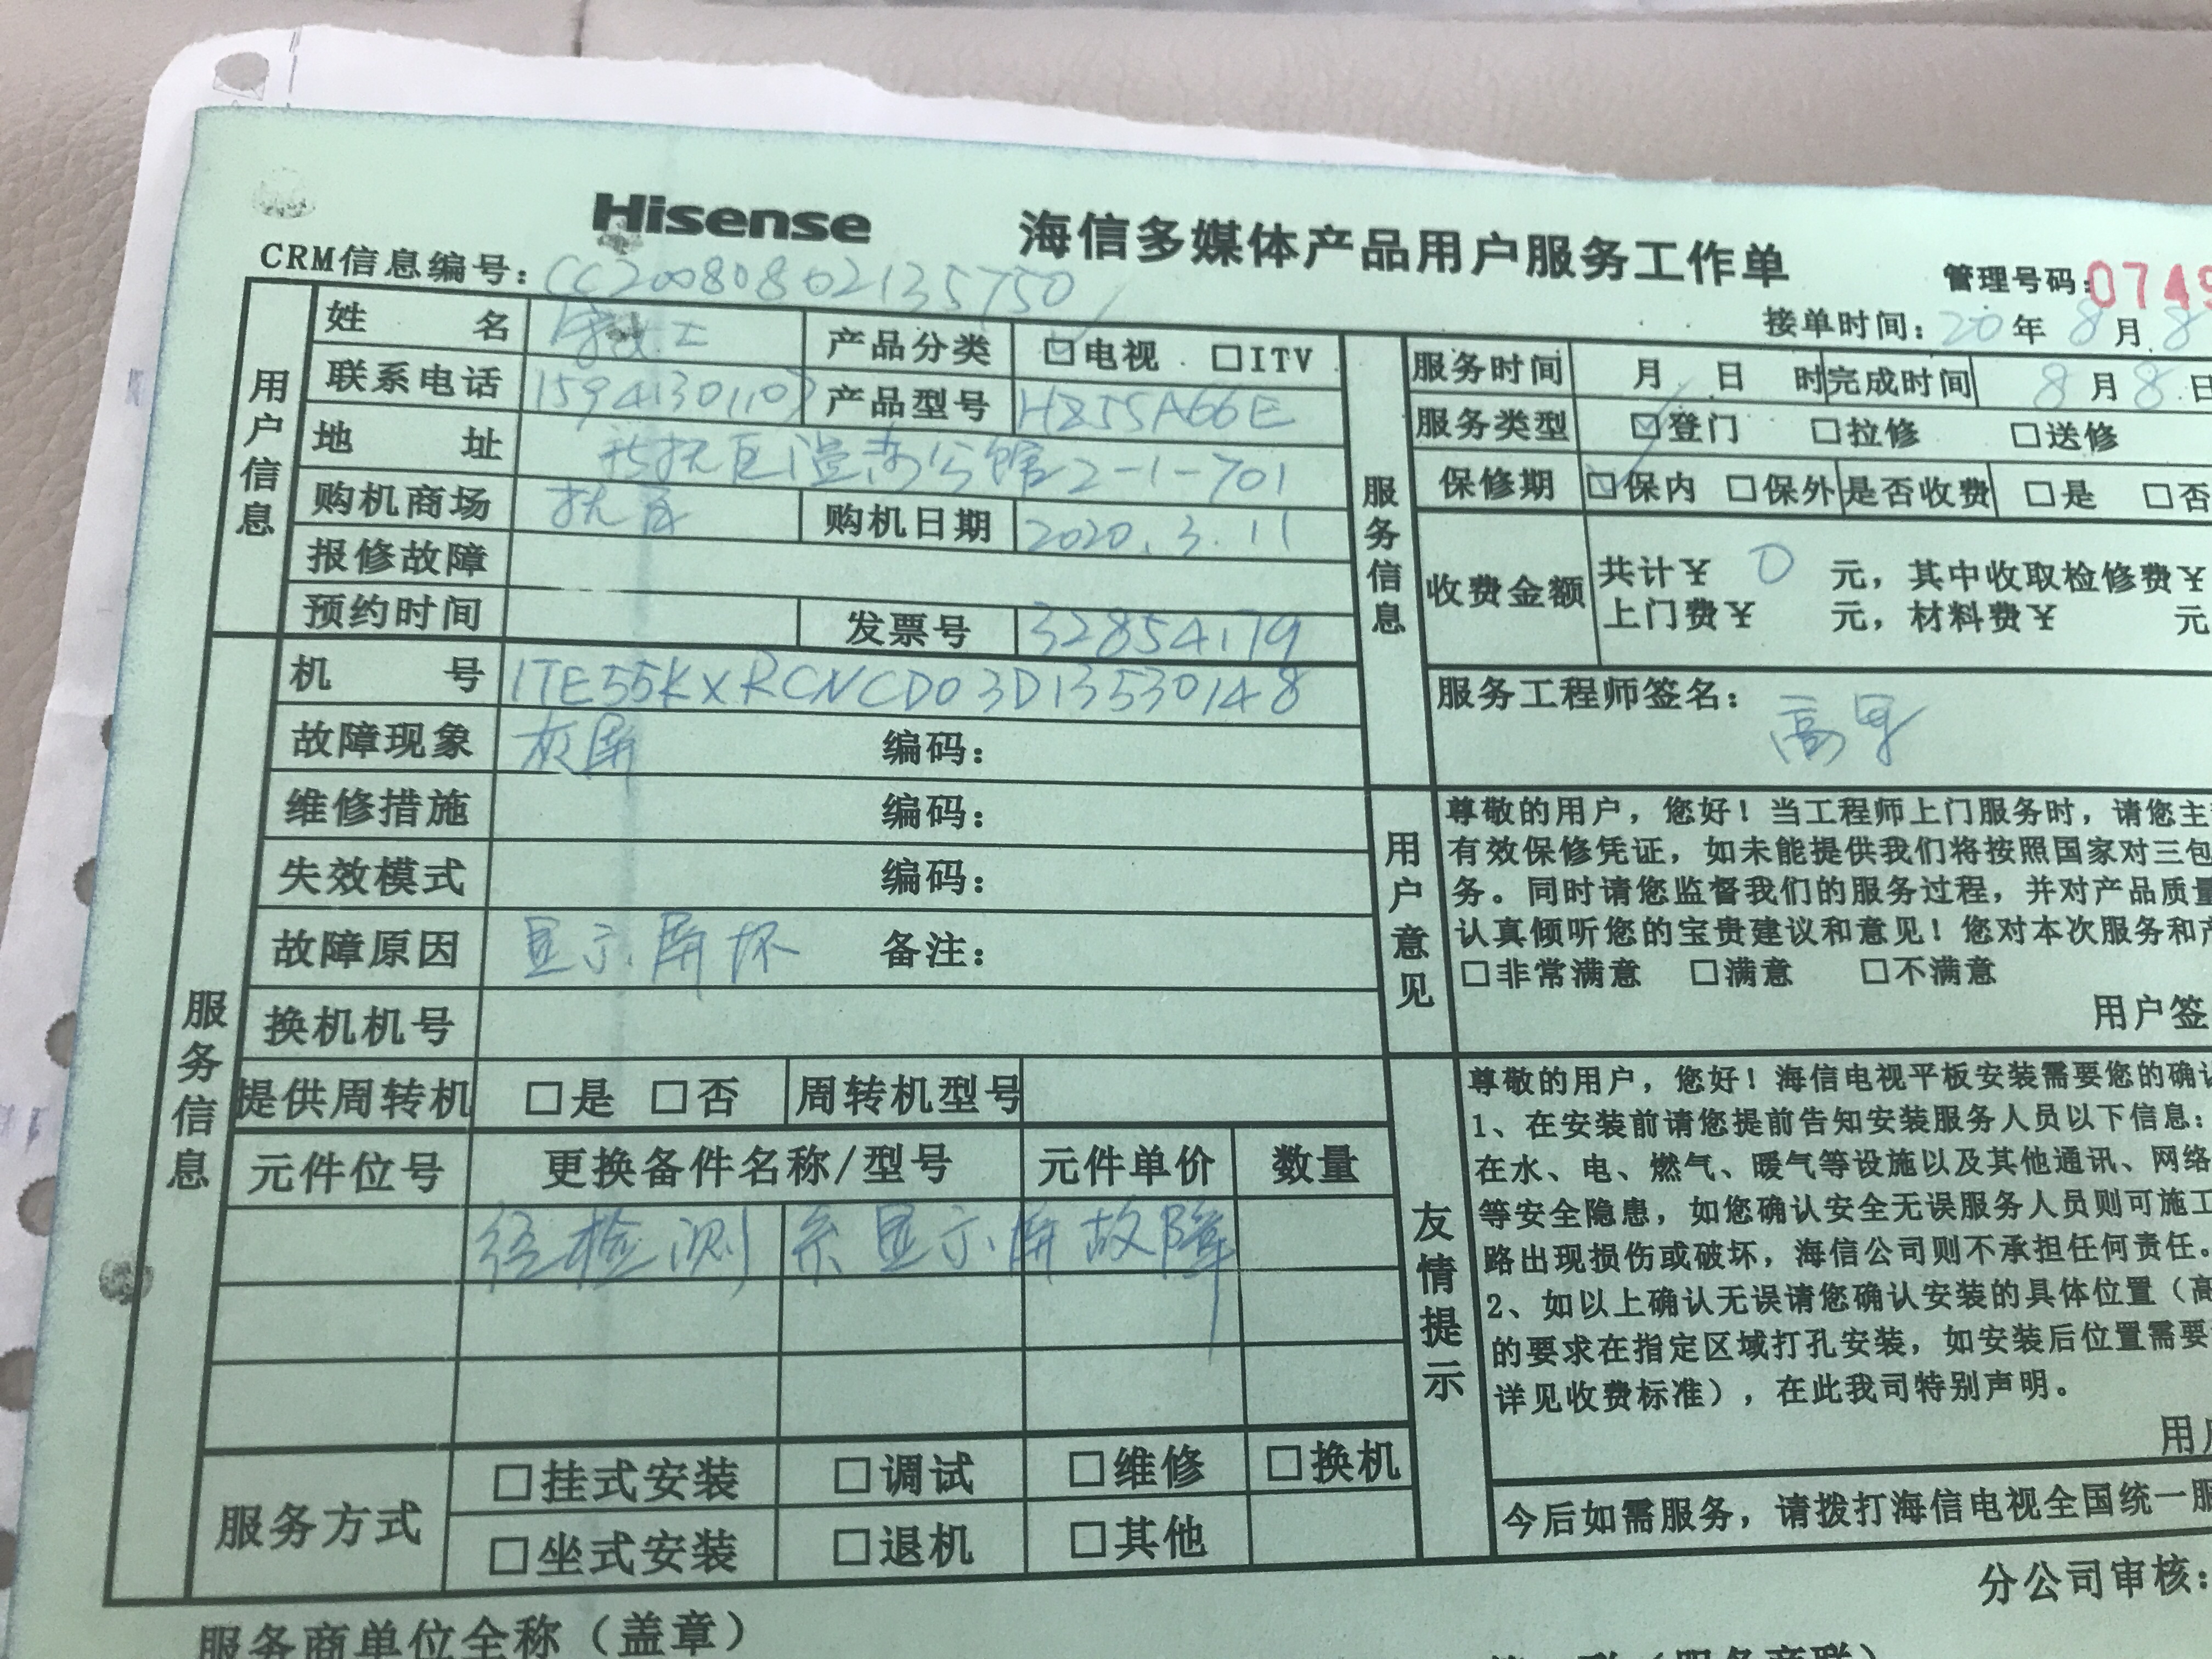 Hisense 海信多媒体产品用户服务工作单
CRM信息编号: CC20080802135750 管理号码: 0749
接单时间: 20年8月8
用户信息
姓名 产品分类 ☑电视 □ITV
联系电话 15941301107 产品型号 HZ55A66E
地址 公馆2-1-701
购机商场 购机日期 2020.3.11
报修故障
预约时间 发票号 32854179
服务信息
机号 1TE55KXRCNCD03D13530148
故障现象 灰屏 编码:
维修措施 编码:
失效模式 编码:
故障原因 显示屏坏 备注:
换机机号
提供周转机 □是 □否 周转机型号
元件位号 更换备件名称/型号 元件单价 数量
经检测系显示屏故障
服务方式 □挂式安装 □调试 □维修 □换机
□坐式安装 □退机 □其他
服务商单位全称(盖章)
服务信息
服务时间 月 日 时 完成时间 8月8日
服务类型 ☑登门 □拉修 □送修
保修期 ☑保内 □保外 是否收费 □是 □否
收费金额 共计¥ 0 元, 其中收取检修费¥
上门费¥ 元, 材料费¥ 元
服务工程师签名:
用户意见
尊敬的用户, 您好! 当工程师上门服务时, 请您主
有效保修凭证, 如未能提供我们将按照国家对三包
务。同时请您监督我们的服务过程, 并对产品质量
认真倾听您的宝贵建议和意见! 您对本次服务和产
□非常满意 □满意 □不满意
用户签
友情提示
尊敬的用户, 您好! 海信电视平板安装需要您的确认
1、在安装前请您提前告知安装服务人员以下信息:
在水、电、燃气、暖气等设施以及其他通讯、网络
等安全隐患, 如您确认安全无误服务人员则可施工
路出现损伤或破坏, 海信公司则不承担任何责任。
2、如以上确认无误请您确认安装的具体位置(高
的要求在指定区域打孔安装, 如安装后位置需要
详见收费标准), 在此我司特别声明。
用户
今后如需服务, 请拨打海信电视全国统一服
分公司审核: